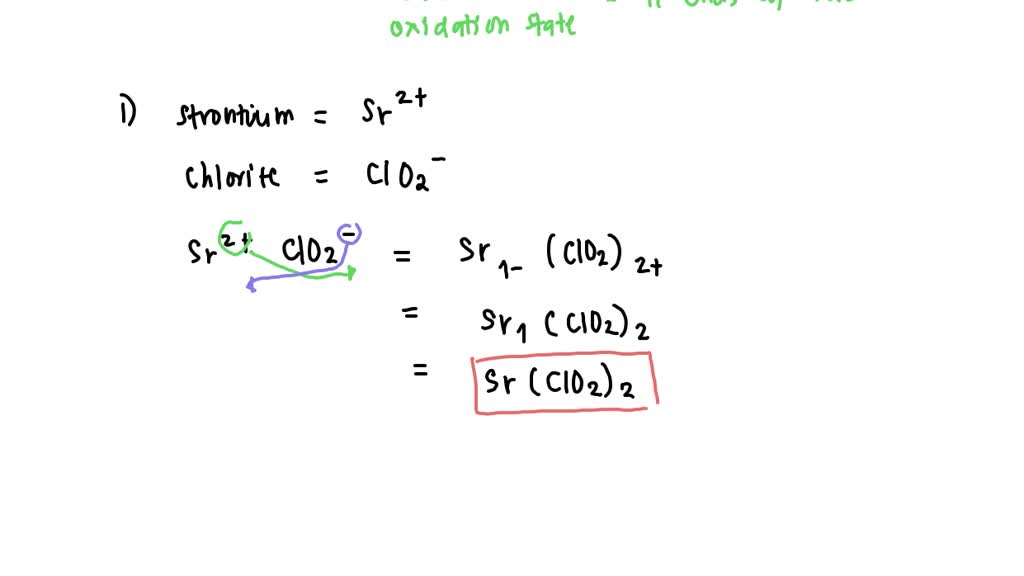 oxidation state
1) strontium = Sr²⁺
chlorite = ClO₂⁻
Sr²⁺ ClO₂⁻ = Sr₁₋ (ClO₂)₂₊
= Sr₁ (ClO₂)₂
= Sr (ClO₂)₂